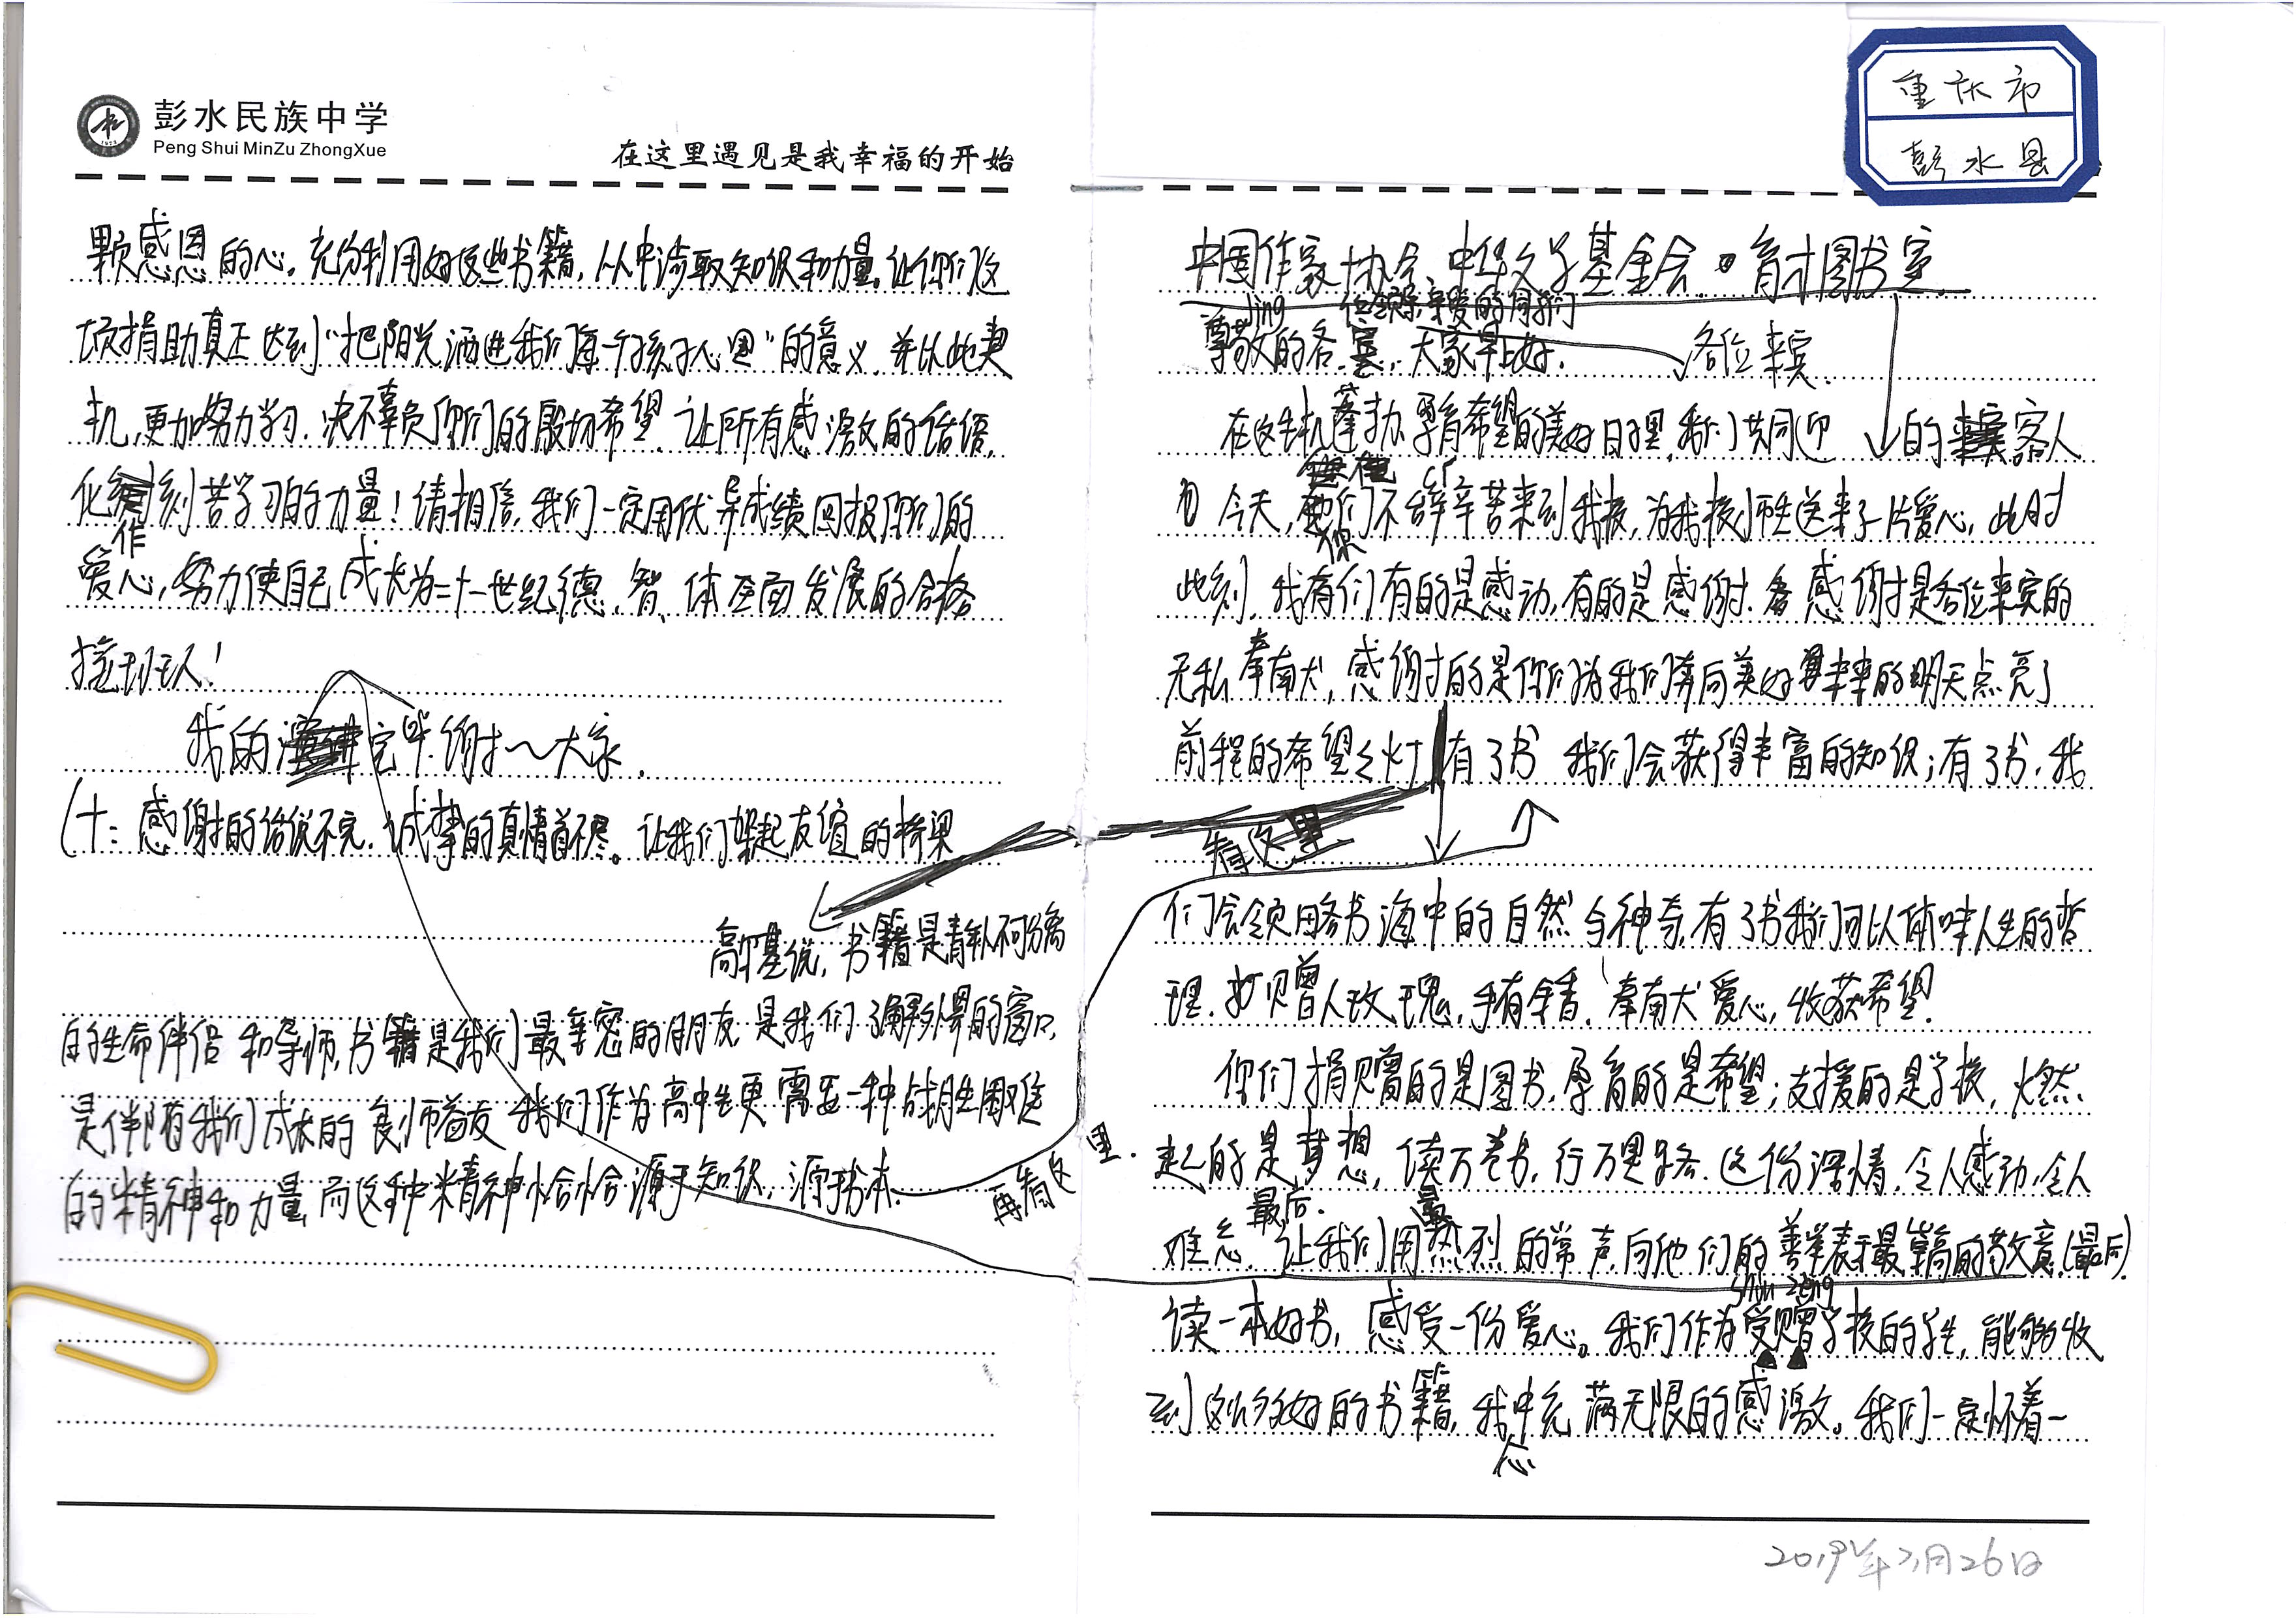 彭水民族中学
Peng Shui MinZu ZhongXue
在这里遇见是我幸福的开始
颗感恩的心。充份利用好这些书籍,从中涉取知识和力量。让你们这
项捐助真正达到“把阳光洒进我们每一个孩子心里”的意义,并以此契
机,更加努力学习.决不辜负你们的殷切希望.让所有感激的话语,
化作刻苦学习的力量!请相信,我们一定用优异成绩回报你们的
爱心,努力使自己成长为二十一世纪德、智、体全面发展的合格
接班人!
我的 完毕.谢谢大家.
感谢的话说不完.诚挚的真情首不尽。让我们架起友谊的桥梁
高尔基说,书籍是青年人不可分离
的生命伴侣和导师,书籍是我们最亲密的朋友,是我们了解外界的窗口,
是伴随我们成长的良师益友 我们作为高中生更需要一种战胜困难
的精神和力量,而这种精神恰恰源于知识,源于书本.
再看这
里.
重庆市
彭水县
中国作家协会、中华文学基金会.育才图书室.
jing 亲爱的同学们
尊敬的各 大家早上好.
各位来宾.
在这生机蓬勃、孕育希望的美好日子里,我们共同迎 的 客人
ci
今天,你们不辞辛苦来到我校,为我校师生送来了一片爱心,此时
此刻.我们有的是感动,有的是感谢.感谢是各位来宾的
无私奉献,感谢的是你们为我们奔向美好未来的明天点亮了
前程的希望之灯 有了书 我们会获得丰富的知识;有了书,我
先看这里
们会领略书海中的自然与神奇,有了书我们可以体味人生的哲
理.赠人玫瑰,手有余香.奉献爱心,收获希望.
你们捐赠的是图书,孕育的是希望;支援的是学校,燃
起的是梦想,读万卷书,行万里路.这份深情,令人感动,令人
最后. 最
难忘.让我们用热烈的掌声向他们的善举表示最崇高的敬意.(最后).
shou zeng
读一本好书,感受一份爱心。我们作为受赠学校的学生,能够收
到这么多好的书籍,我心中充满无限的感激。我们一定怀着一
2019年3月26日